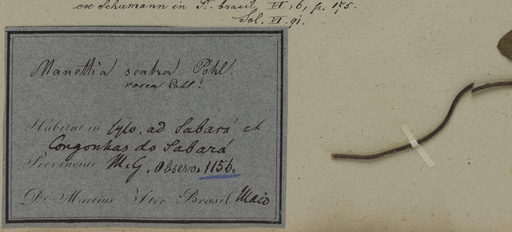 ex Schumann in Fl. brasil. VI, 6, p. 175.
Manettia scabra Pohl.
rosea Pohl!
Habitat in sylv. ad Sabará et
Congonhas do Sabará
Provinciae M. G. Observ. 1156.
Dr. Martius Iter Brasil Maio